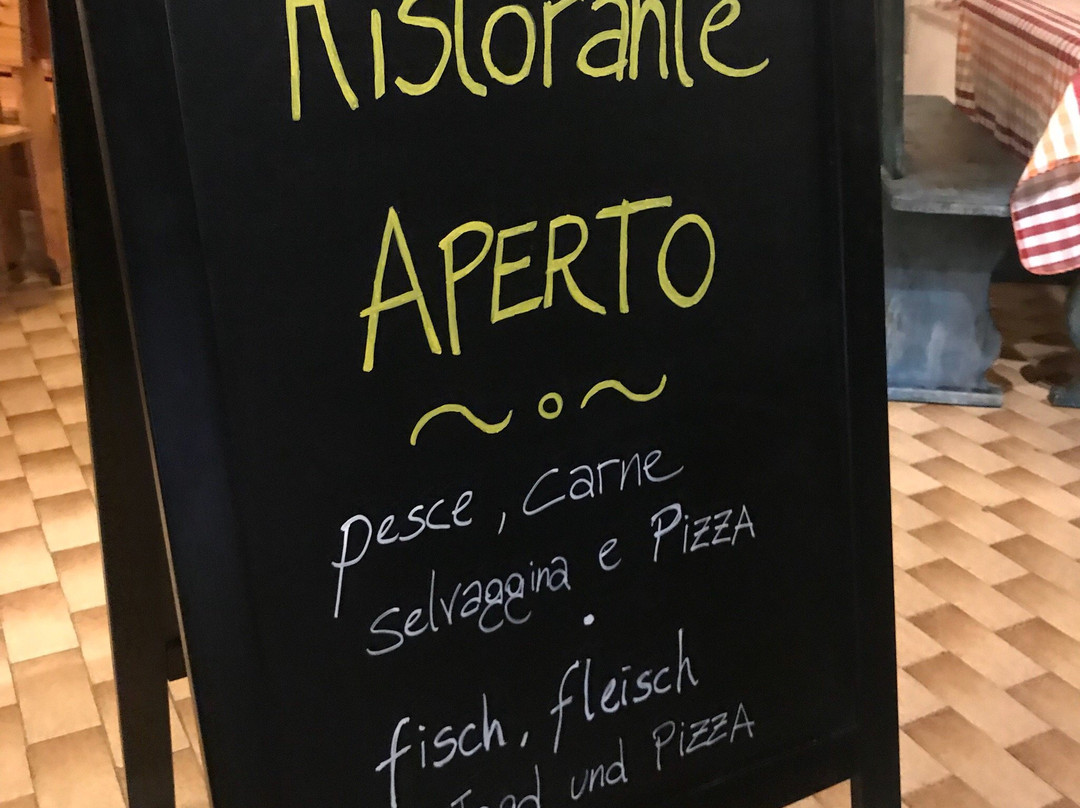 Ristorante
APERTO
pesce, carne
selvaggina e PIZZA
fisch, fleisch
und PIZZA